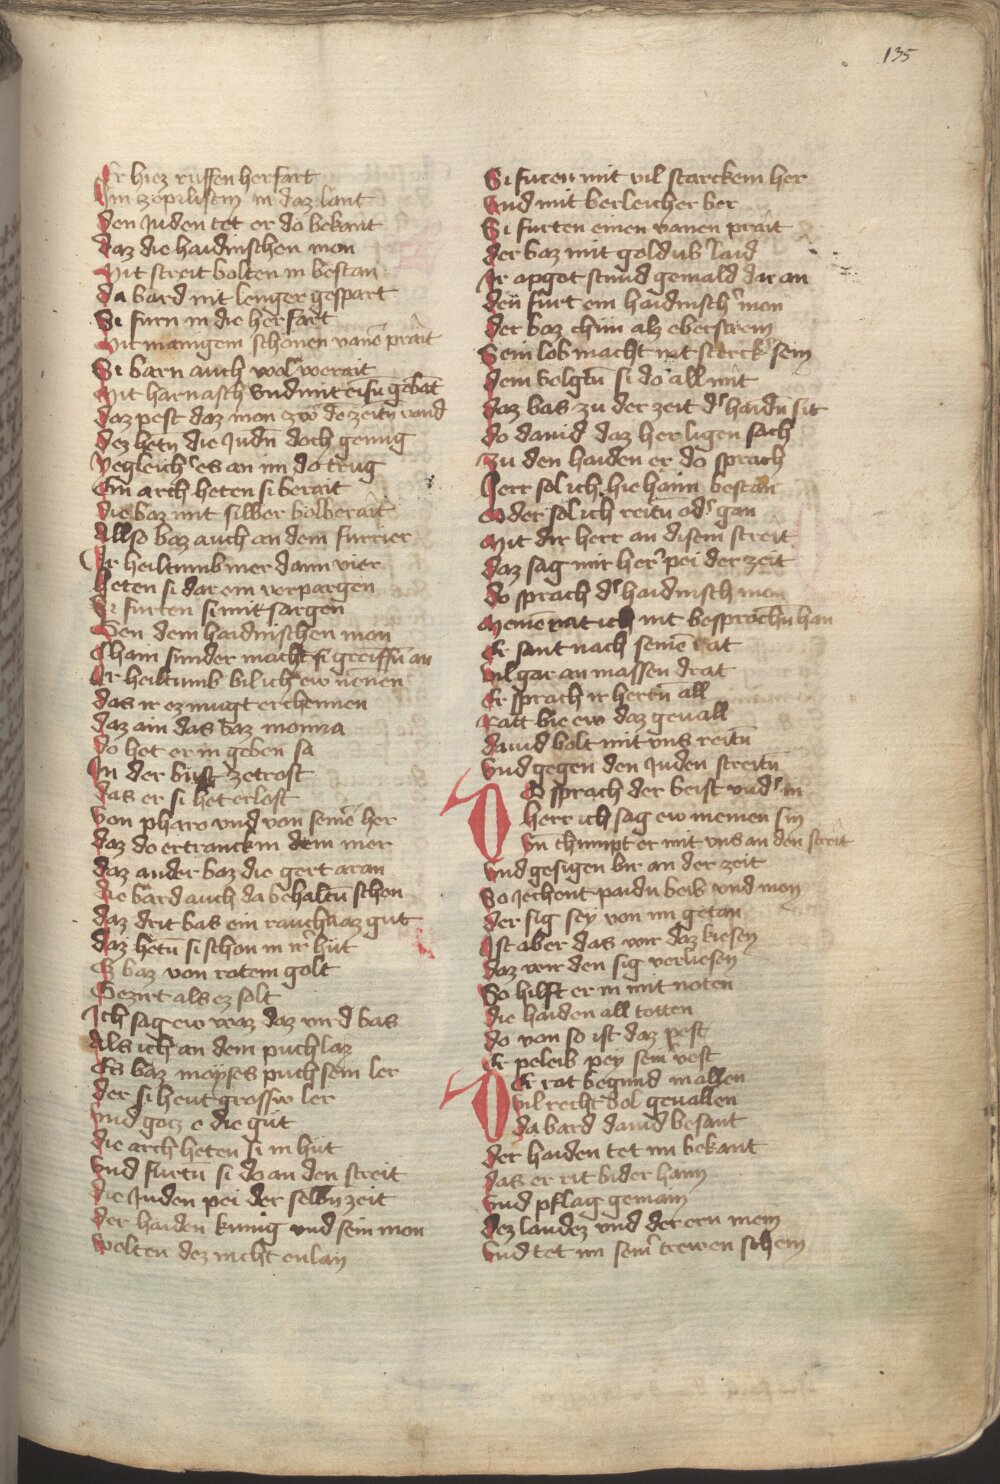 135
Er hiez ruffen herfart
Im zephlistin in daz lant
den Juden tet er do bekant
daz die haidnischen mon
Mit streit bolten in bestan
da bard nit lenger gespart
Si furn in die herfart
Mit manigem schonen vanē prait
Si barn auch wol werait
Mit harnasch vnd mit eisn̄ gebāt
daz pest daz mon zwo dē zeitn̄ vand
dez hetn̄ die Judn̄ doch genug
Yegleich's es an im do trug
Ein arch heten si berait
die baz mit silber bolberait
Allso baz auch an dem furrier
Ir heiltumb mer dann vier
heten si dar ein verpargen
Si furten si mit sargen
Gen dem haidnischen mon
Chain sunder macht si greiffn̄ an
Ir heiltumb bil ich ew nenen
das ir ez mugt erchennen
daz ain das baz monna
do het er in geben sa
In der bust zetrost
das er si het erlost
von pharo vnd von seinē her
daz do ertranck in dem mer
daz ander baz die gert aran
die bard auch da behaltn̄ schon
daz drit bas ein rauchuaz gut
daz hetn̄ si schon in ir hut
Es baz von rotem golt
Gezirt als ez solt
Ich sag ew waz daz vird bas
Als ich an dem puch laz
Es baz moyses puch sein ler
der si heut grossw ler
vnd gotz e die gut
die arch heten si in hut
vnd furtn̄ si do an den streit
die Juden pei der selbn̄ zeit
der haiden kunig vnd sein mon
wolten dez nicht enlan
Si furen mit vil starckem her
vnd mit berleicher ber
Si furten einen vanen prait
der baz mit gold vb'laid
Ir apgot stund gemald dar an
den furt ein haidnisch' mon
der baz chun alz eberswein
Sein lob macht nit sterck' sein
dem bolgtn̄ si do all mit
daz bas zu der zeit d' haidn̄ sit
do dauid daz her ligen sach
zu den haiden er do sprach
Herr sol ich hie haim bestan
oder sol ich reitn̄ od' gan
Mit dir herr an disem streit
daz sag mir her' pei der zeit
do sprach d' haidnisch mon
Meinē rat ich nit besprochn̄ han
Er sant nach seinē rat
vil gar an massen drat
Er sprach ir hertn̄ all
Ratt bie ew daz geuall
dauid bolt mit vns reitn̄
vnd gegen den Juden streitn̄
Do sprach der beist vnd' in
herr ich sag ew meinen sin
vn̄ chumpt er mit vns an den streit
vnd gesigen bir an der zeit
So Jechent paidn̄ beib vnd mon
der sig sey von im getan
Ist aber das wir daz kiesen
daz wir den sig verliesen
So hilft er in mit noten
die haiden all totten
do von so ist daz pest
Er peleib pey sein' vest
Der rat begund in allen
vil recht bol geuallen
da bard dauid besant
der haiden tet im bekant
das er rit bider haim
vnd pflag gemain
dez landez vnd der ern mein
vnd tet im sein' trewen schein